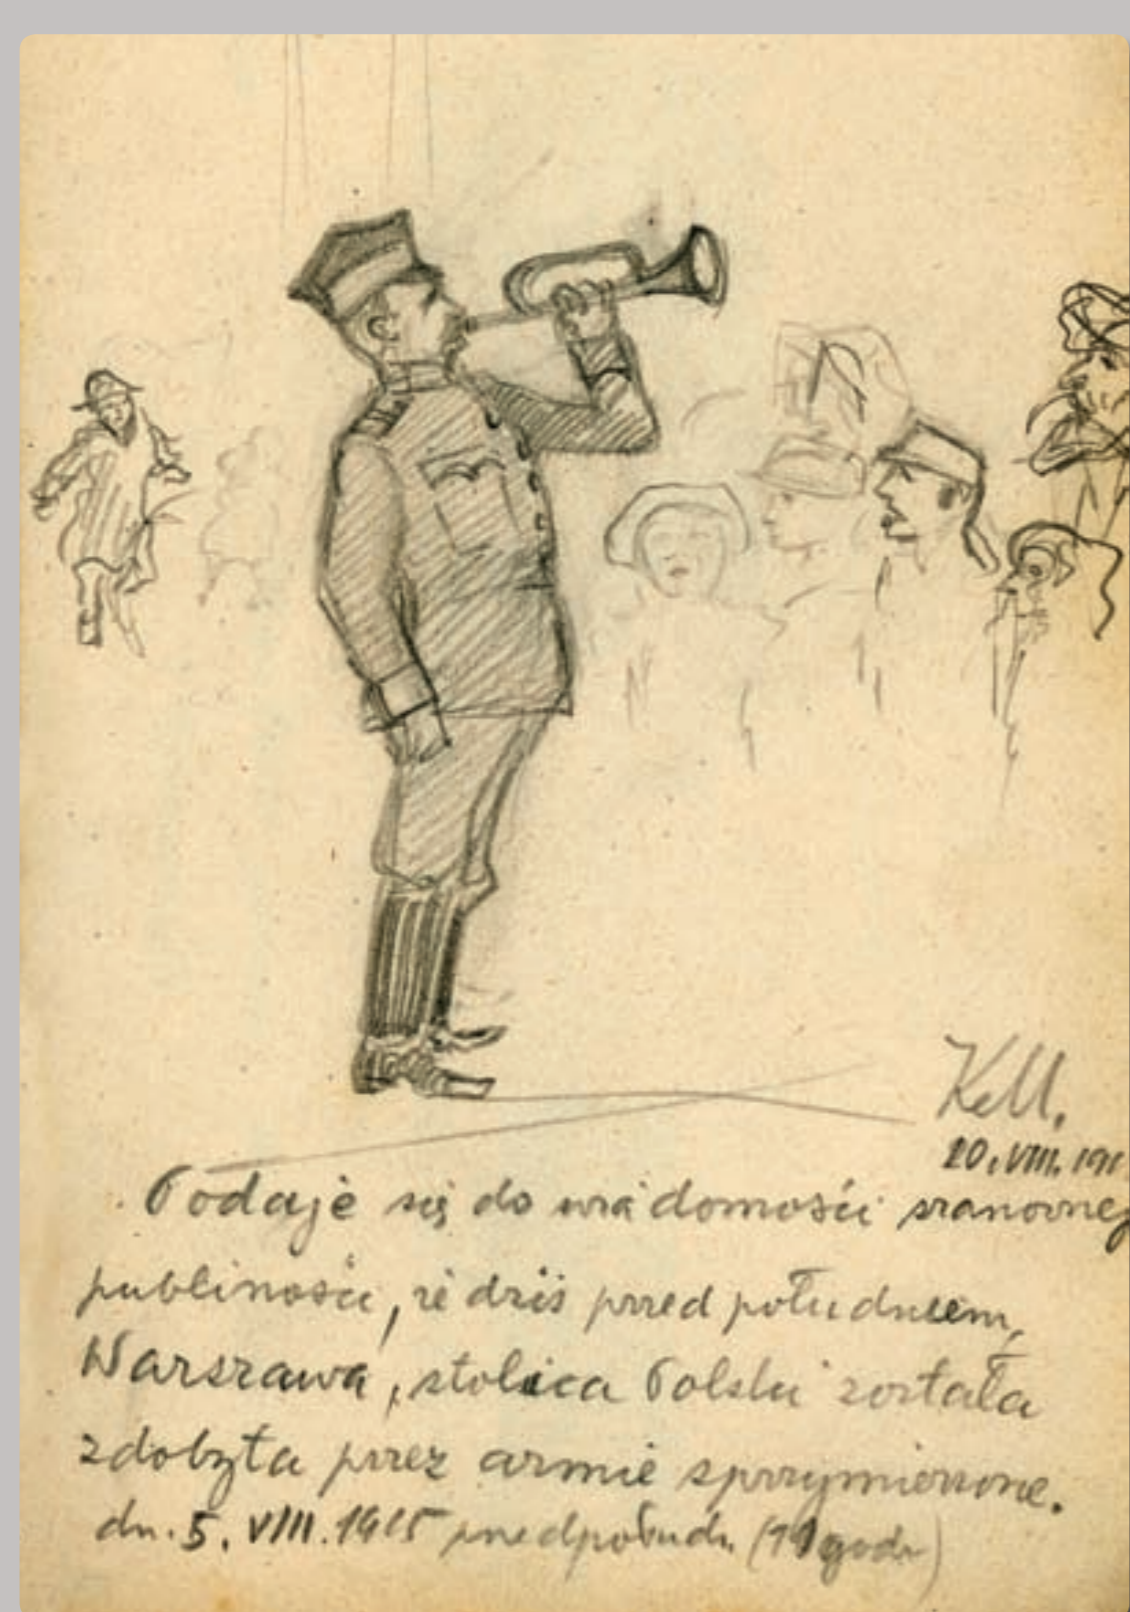 KM.
20. VIII. 191
Podaje się do wiadomości szanownej
publiczności, że dziś przed południem,
Warszawa, stolica Polski została
zdobyta przez armie sprzymierzone.
dn. 5. VIII. 1915 przedpołud. (11 godz)